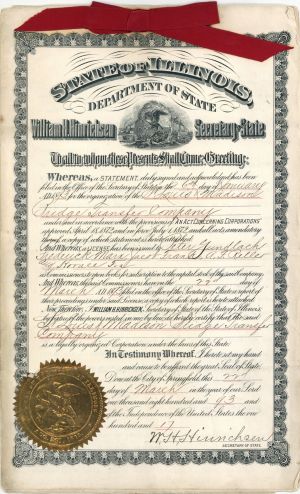 STATE OF ILLINOIS,
DEPARTMENT OF STATE
William H. Hinrichsen Secretary of State
To all to whom these Presents Shall Come, Greeting:
Whereas, a STATEMENT, duly signed and acknowledged has been
filed in the Office of the Secretary of State, on the 6th day of January
for the organization of the St Louis & Madison
Bridge Transfer Company
under and in accordance with the provisions of "AN ACT CONCERNING CORPORATIONS"
approved April 18, 1872, and in force July 1, 1872, and all acts amendatory
thereof, a copy of which statement is hereto attached.
And Whereas, a LICENSE has been issued to
as Commissioners to open books for subscription to the capital stock of the said company
And Whereas, the said Commissioners have on the 22 day of
March filed in the office of the Secretary of State a report of
their proceedings under said license, a copy of which report is hereto attached.
Now Therefore, I WILLIAM H. HINRICHSEN, Secretary of State, of the State of Illinois
by virtue of the powers vested in me by law, do hereby certify that the said
St Louis & Madison Transfer
Company
is a legally organized Corporation under the laws of this State.
In Testimony Whereof, I hereto set my hand
and cause to be affixed the great Seal of State.
Done at the City of Springfield, this 22
day of March in the year of our Lord
one thousand eight hundred and 93 and
of the Independence of the United States the one
hundred and 17
W H Hinrichsen
SECRETARY OF STATE